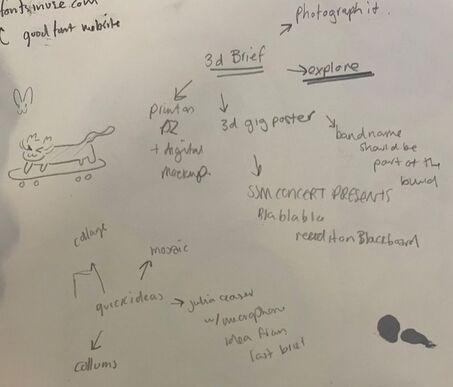 fontsinuse.com
good font website
photograph it.
3d Brief
explore
print as
A2
+ digital
mockup.
3d gig poster
bandname
should be
part of the
SSM CONCERT PRESENTS
Blablabla
read it on Blackboard
collage
mosaic
quick ideas
julia ceaser
w/ microphone
idea from
last brief
collums